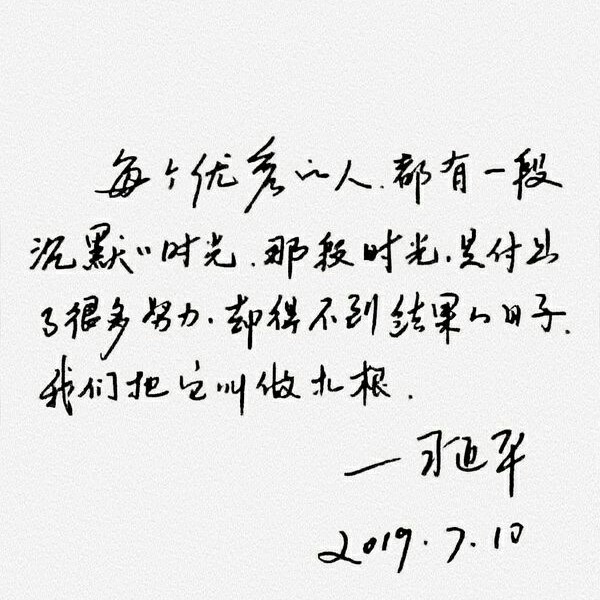 每个优秀的人.都有一段
沉默的时光.那段时光.是付出
了很多努力.却得不到结果的日子.
我们把它叫做扎根.
一习近平
2019.7.10